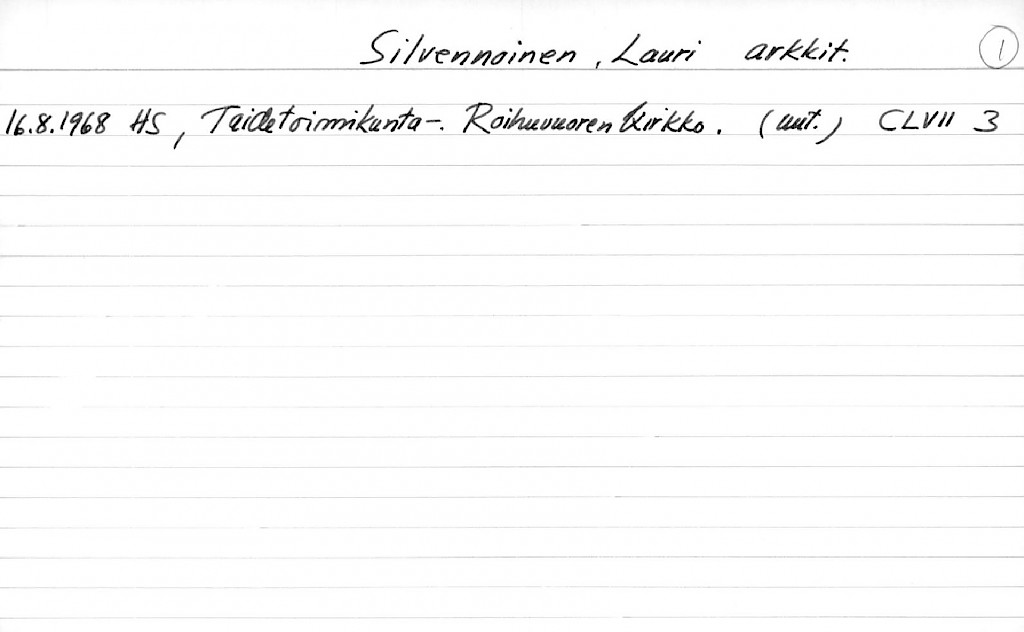 Silvennoinen, Lauri arkkit. 1
16.8.1968 HS, Taidetoimikunta-. Roihuvuoren Kirkko. (uut.) CLVII 3